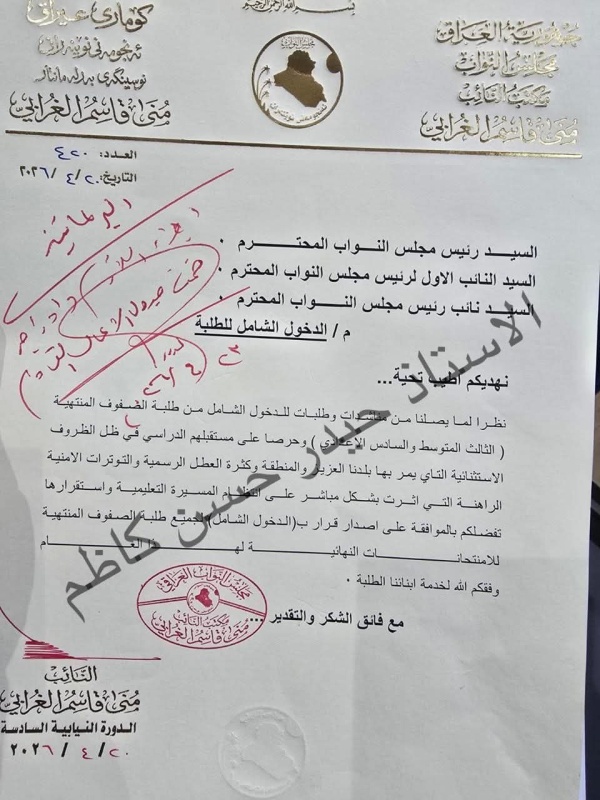 بسم الله الرحمن الرحيم
جمهورية العراق
مجلس النواب
مكتب النائب
منى قاسم الغرابي
كوماری عیراق
ئه‌نجومه‌نی نوێنه‌ران
منى قاسم الغرابي
مجلس النواب
العدد: ٤٢٠
التاريخ: ٢٠/ ٤ / ٢٠٢٦
البرلمانية
السيد رئيس مجلس النواب المحترم .
السيد النائب الاول لرئيس مجلس النواب المحترم .
السيد نائب رئيس مجلس النواب المحترم .
م / الدخول الشامل للطلبة
نهديكم اطيب تحية...
نظرا لما يصلنا من مناشدات وطلبات للدخول الشامل من طلبة الصفوف المنتهية
( الثالث المتوسط والسادس الاعدادي ) وحرصا على مستقبلهم الدراسي في ظل الظروف
الاستثنائية التاي يمر بها بلدنا العزيز والمنطقة وكثرة العطل الرسمية والتوترات الامنية
الراهنة التي اثرت بشكل مباشر على انتظام المسيرة التعليمية واستقرارها
تفضلكم بالموافقة على اصدار قرار ب(الدخول الشامل) لجميع طلبة الصفوف المنتهية
للامتحانات النهائية لهذا العام
وفقكم الله لخدمة ابنائنا الطلبة .
مع فائق الشكر والتقدير ...
الاستاذ حيدر حسين كاظم
مجلس النواب العراقي
مكتب النائب
منى قاسم الغرابي
النائب
منى قاسم الغرابي
الدورة النيابية السادسة
٢٠/ ٤ / ٢٠٢٦